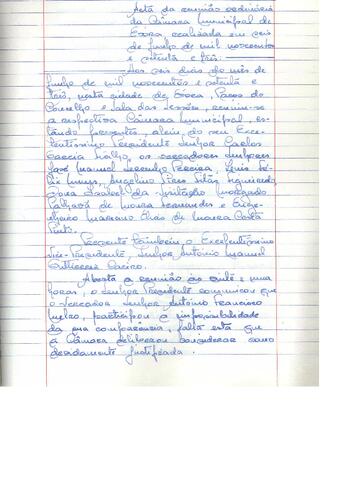 Acta da reunião ordinária
da Câmara Municipal de
Évora, realizada em seis
de Junho de mil novecentos
e setenta e três.
Aos seis dias do mês de
Junho de mil novecentos e setenta e
três, nesta cidade de Évora, Paços do
Concelho e Sala das Sessões, reuniu-se
a respectiva Câmara Municipal, es-
tando presentes, além do seu Exce-
lentíssimo Presidente Senhor Carlos
Garcia, os vereadores Senhores
José Manuel Pereira, Luís Fé-
lix Nunes, Angelino Pires
Dona Isabel da Visitação Morgado
de Moura Fernandes e Enge-
nheiro Mariano Elias de Moura Costa
Pinto.
Presente também o Excelentíssimo
Vice-Presidente, Senhor António Manuel
Aberta a reunião às onze e uma
horas, o Senhor Presidente comunicou que
o Vereador Senhor António Francisco
participou a impossibilidade
da sua comparência, falta esta que
a Câmara deliberou considerar como
devidamente justificada.